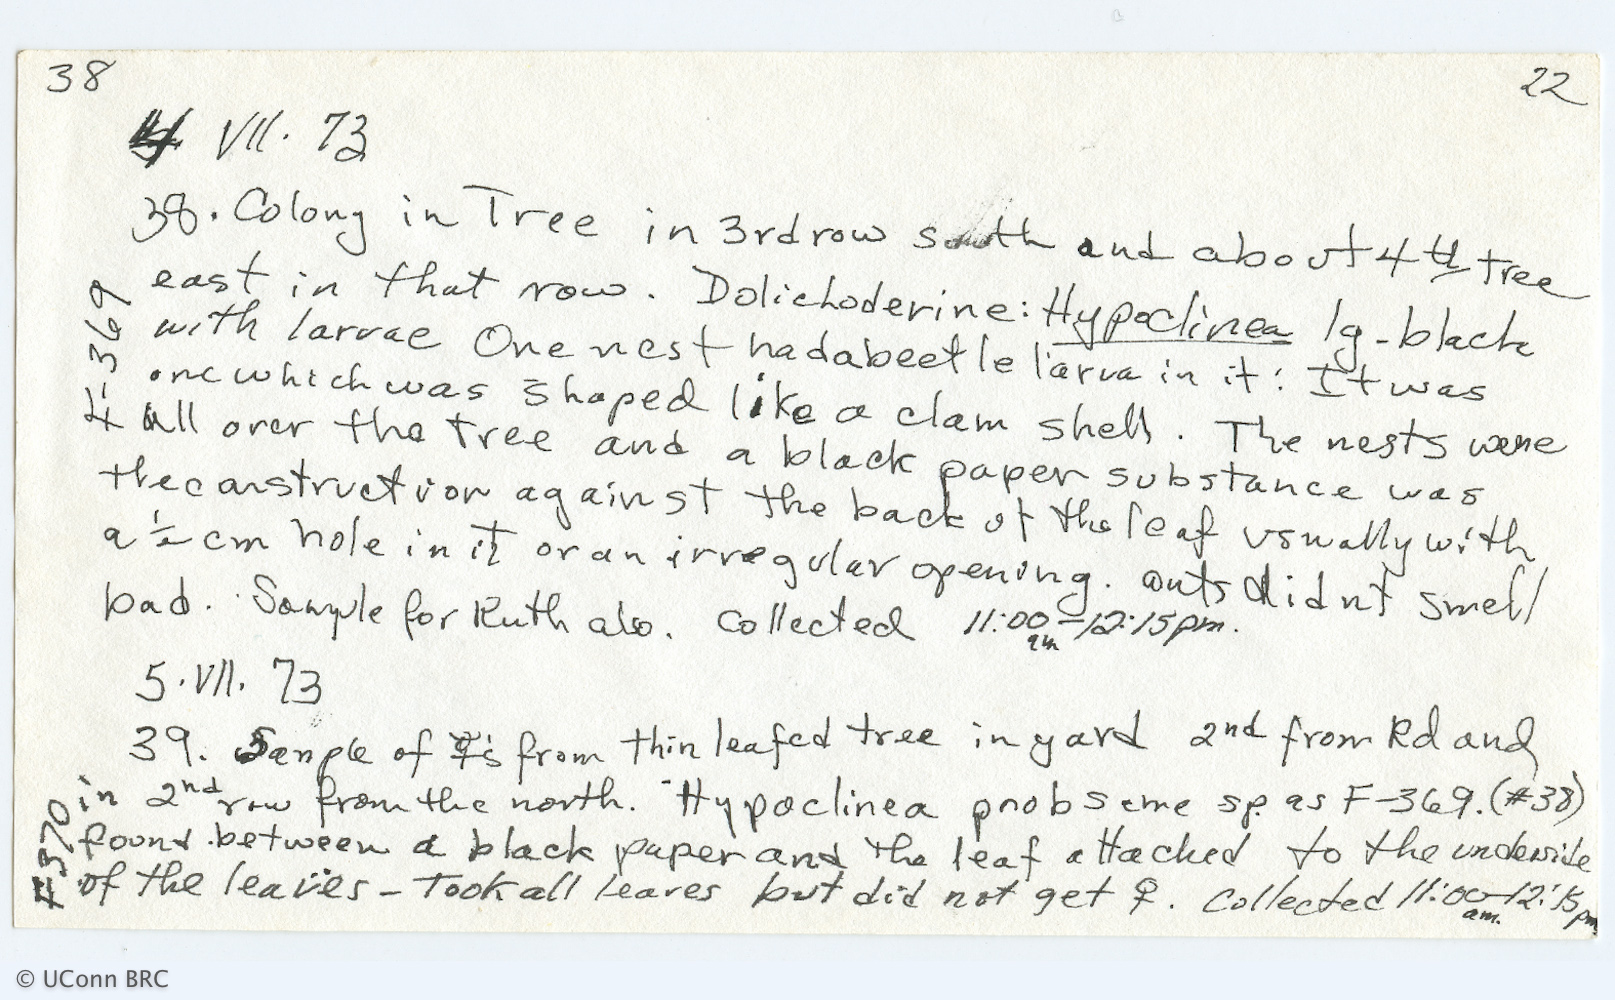 38 22
4 VII. 73
38. Colony in Tree in 3rd row south and about 4th tree
east in that row. Dolichoderine: Hypoclinea lg-black
with larvae One nest had a beetle larva in it: It was
one which was shaped like a clam shell. The nests were
all over the tree and a black paper substance was
the construction against the back of the leaf usually with
a ½ cm hole in it or an irregular opening. ants didnt smell
bad. Sample for Ruth also. Collected 11:00 am-12:15pm.
F-369
5.VII. 73
39. Sample of ☿'s from thin leafed tree in yard 2nd from Rd and
in 2nd row from the north. Hypoclinea prob same sp. as F-369. (#38)
found between a black paper and the leaf attached to the underside
of the leaves - Took all leaves but did not get ♀. Collected 11:00 am.-12:15 pm
F370
© UConn BRC